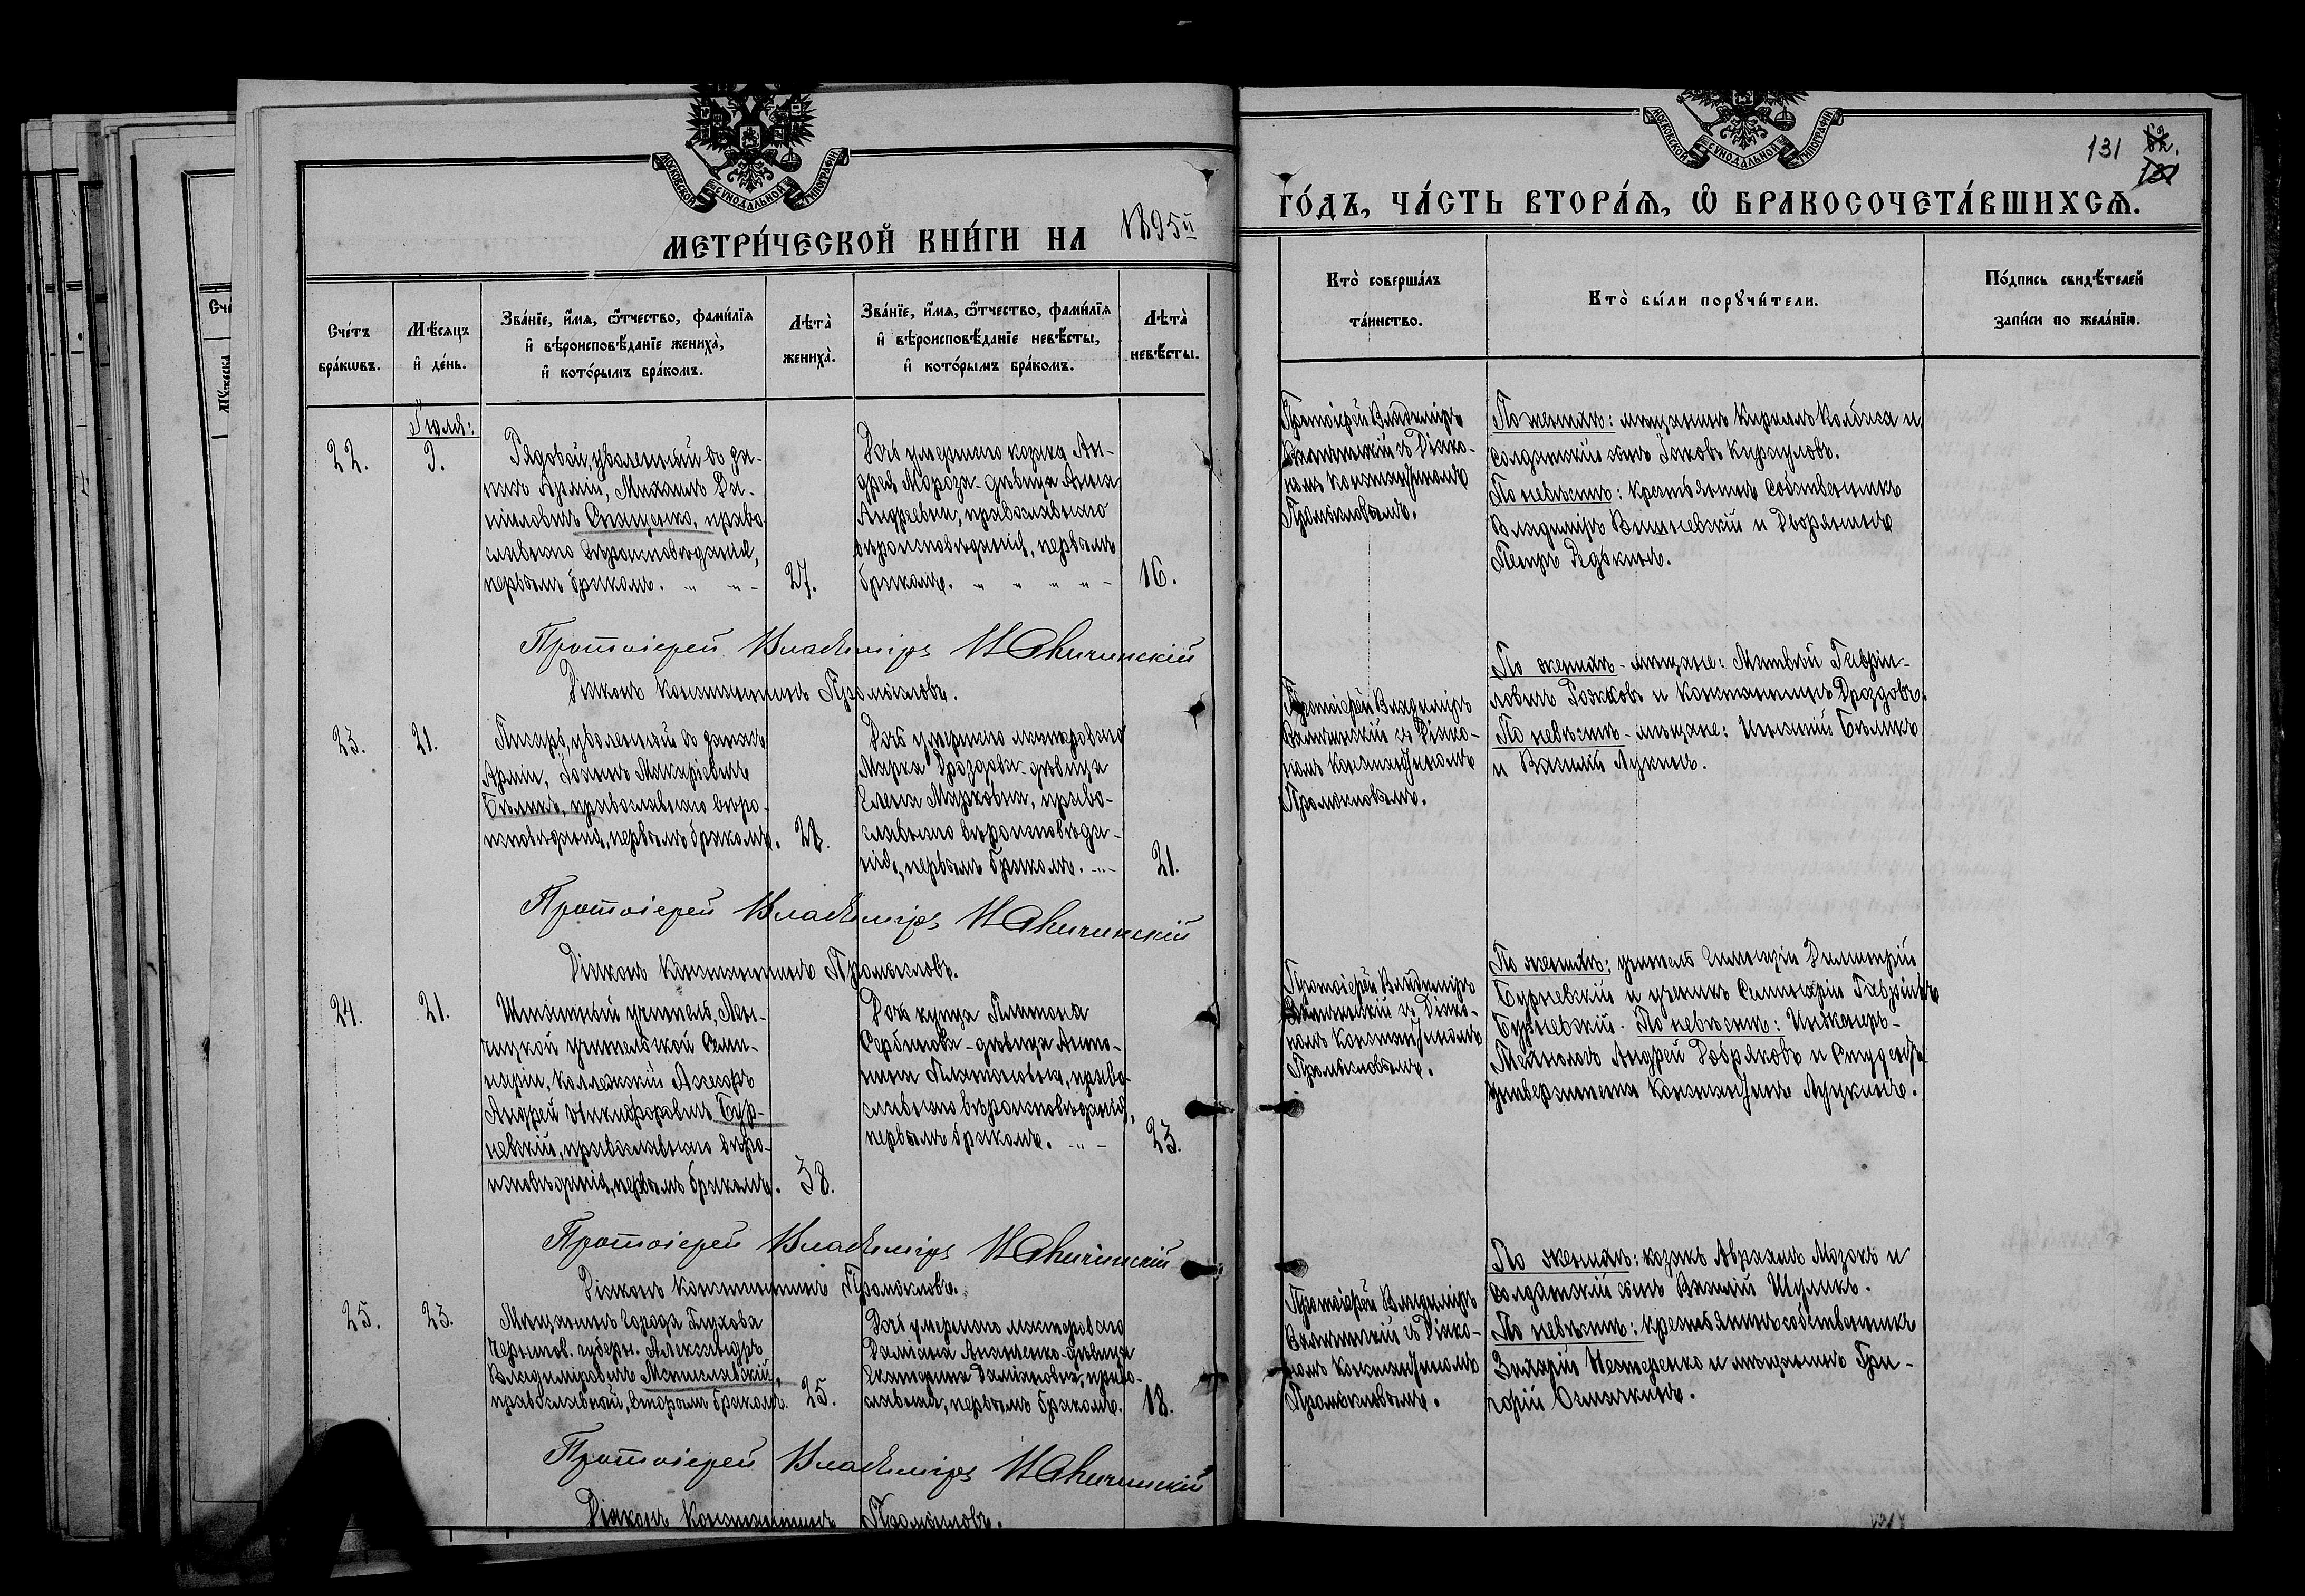 МОСКОВСКОЙ СѴНОДАЛЬНОЙ ТИПОГРАФІИ
МЕТРИ́ЧЕСКОЙ КНИ́ГИ НА 1895й
Сче́тъ бра́кωвъ.
Мѣ́сяцъ и҆ де́нь.
Зва́нїе, и҆́мѧ, ѻ҆́тчество, фами́лїѧ и҆ вѣроисповѣ́данїе жениха̀, и҆ кото́рымъ бра́комъ.
Лѣта̀ жениха̀.
Зва́нїе, и҆́мѧ, ѻ҆́тчество, фами́лїѧ и҆ вѣроисповѣ́данїе невѣ́сты, и҆ кото́рымъ бра́комъ.
Лѣта̀ невѣ́сты.
Іюля:
22.
9.
Рядовой, уволенный въ за-
пасъ Арміи, Михаилъ Да-
ніиловичъ Снащенко, право-
славнаго вѣроисповѣданія,
первымъ бракомъ.
27.
Дочь умершаго козака Ан-
дрея Мороза - дѣвица Анна
Андреевна, православнаго
вѣроисповѣданія, первымъ
бракомъ.
16.
Протоіерей Владиміръ
Діаконъ Константинъ Промысловъ.
23.
21.
Писарь, уволенный въ запасъ
Арміи, Іоаннъ Макаріевичъ
Бѣликъ, православнаго вѣро-
исповѣданія, первымъ бракомъ.
Дочь умершаго мастероваго
Марка Дроздова - дѣвица
Елена Маркова, право-
славнаго вѣроисповѣда-
нія, первымъ бракомъ.
21.
Протоіерей Владиміръ
Діаконъ Константинъ Промысловъ.
24.
21.
Штатный учитель,
учительской Семи-
наріи, Коллежскій Ассесоръ
Андрей Никифоровичъ Бур-
невскій, православнаго вѣро-
исповѣданія, первымъ бракомъ.
38.
Дочь купца Платона
Сербинова - дѣвица Анто-
нина Платоновна, право-
славнаго вѣроисповѣданія,
первымъ бракомъ.
23.
Протоіерей Владиміръ
Діаконъ Константинъ Промысловъ.
25.
23.
Мѣщанинъ города Глухова
Чернигов. губерн. Александръ
Владиміровичъ Мстиславскій,
православный, вторымъ бракомъ.
25.
Дочь умершаго мастероваго
Даміана Ананченко - дѣвица
Екатерина Даміановна, право-
славная, первымъ бракомъ.
18.
Протоіерей Владиміръ
Діаконъ Константинъ Промысловъ.
МОСКОВСКОЙ СѴНОДАЛЬНОЙ ТИПОГРАФІИ
131
ГО́ДЪ, ЧА́СТЬ ВТОРА́Ѧ, Ѡ҆ БРАКОСОЧЕТА́ВШИХСѦ.
Кто̀ соверша́лъ та́инство.
Кто̀ бы́ли порꙋчи́тели.
По́дпись свидѣ́телей за́писи по жела́нїю.
Протоіерей Владиміръ
съ Діако-
номъ Константиномъ
Промысловымъ.
По женихѣ: мѣщанинъ Кириллъ Колбаса и
солдатскій сынъ Іаковъ Киркуловъ.
По невѣстѣ: крестьянинъ собственникъ
Владиміръ Вишневскій и Дворянинъ
Петръ Рѣдькинъ.
Протоіерей Владиміръ
съ Діако-
номъ Константиномъ
Промысловымъ.
По женихѣ - мѣщане: Матвѣй Гаврии-
ловичъ и Константинъ Дроздовъ.
По невѣстѣ - мѣщане: Игнатій Бѣликъ
и Василій Лукинъ.
Протоіерей Владиміръ
съ Діако-
номъ Константиномъ
Промысловымъ.
По женихѣ: учитель Гимназіи Димитрій
Бурневскій и ученикъ Семинаріи Гавріилъ
Бурневскій. По невѣстѣ: Инженеръ-
Технологъ Андрей Добряковъ и Студентъ
Университета Константинъ Луцкинъ.
Протоіерей Владиміръ
съ Діако-
номъ Константиномъ
Промысловымъ.
По женихѣ: козакъ Авраамъ Мозокъ и
солдатскій сынъ Василій Шуликъ.
По невѣстѣ: крестьянинъ собственникъ
Захарій Нестеренко и мѣщанинъ Гри-
горій Осмачкинъ.